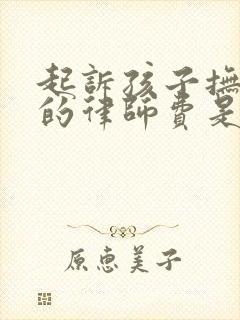 起訴孩子撫
的律師費是
原恵美子